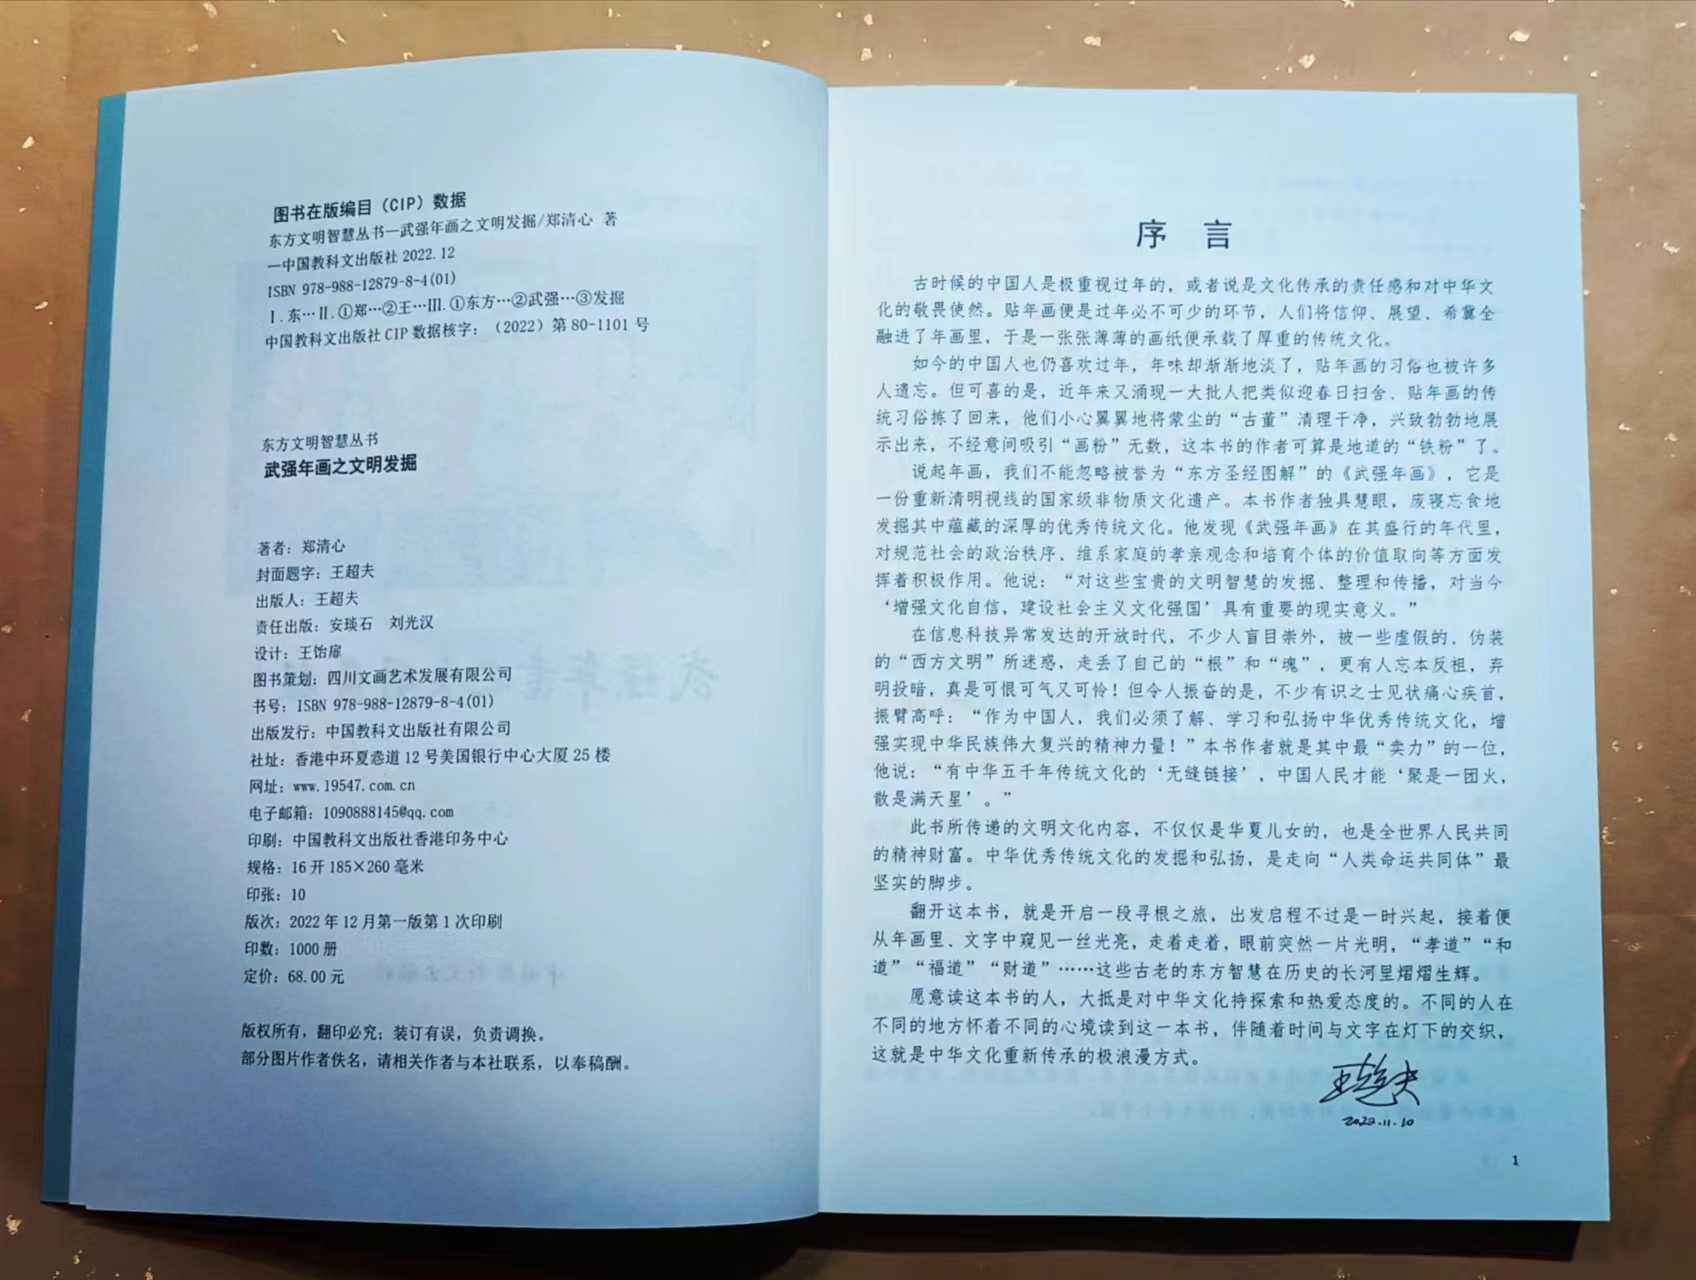 图书在版编目（CIP）数据
东方文明智慧丛书—武强年画之文明发掘/郑清心 著
—中国教科文出版社 2022.12
ISBN 978-988-12879-8-4(01)
Ⅰ.东…Ⅱ.①郑…②王…Ⅲ.①东方…②武强…③发掘
中国教科文出版社 CIP 数据核字：（2022）第 80-1101 号
东方文明智慧丛书
武强年画之文明发掘
著者：郑清心
封面题字：王超夫
出版人：王超夫
责任出版：安琰石 刘光汉
设计：王饴扉
图书策划：四川文画艺术发展有限公司
书号：ISBN 978-988-12879-8-4(01)
出版发行：中国教科文出版社有限公司
社址：香港中环夏悫道 12 号美国银行中心大厦 25 楼
网址：www.19547.com.cn
电子邮箱：1090888145@qq.com
印刷：中国教科文出版社香港印务中心
规格：16 开 185×260 毫米
印张：10
版次：2022 年 12 月第一版第 1 次印刷
印数：1000 册
定价：68.00 元
版权所有，翻印必究；装订有误，负责调换。
部分图片作者佚名，请相关作者与本社联系，以奉稿酬。
序 言
古时候的中国人是极重视过年的，或者说是文化传承的责任感和对中华文
化的敬畏使然。贴年画便是过年必不可少的环节，人们将信仰、展望、希冀全
融进了年画里，于是一张张薄薄的画纸便承载了厚重的传统文化。
如今的中国人也仍喜欢过年，年味却渐渐地淡了，贴年画的习俗也被许多
人遗忘。但可喜的是，近年来又涌现一大批人把类似迎春日扫舍、贴年画的传
统习俗拣了回来，他们小心翼翼地将蒙尘的“古董”清理干净，兴致勃勃地展
示出来，不经意间吸引“画粉”无数，这本书的作者可算是地道的“铁粉”了。
说起年画，我们不能忽略被誉为“东方圣经图解”的《武强年画》，它是
一份重新清明视线的国家级非物质文化遗产。本书作者独具慧眼，废寝忘食地
发掘其中蕴藏的深厚的优秀传统文化。他发现《武强年画》在其盛行的年代里，
对规范社会的政治秩序、维系家庭的孝亲观念和培育个体的价值取向等方面发
挥着积极作用。他说：“对这些宝贵的文明智慧的发掘、整理和传播，对当今
‘增强文化自信，建设社会主义文化强国’具有重要的现实意义。”
在信息科技异常发达的开放时代，不少人盲目崇外，被一些虚假的、伪装
的“西方文明”所迷惑，走丢了自己的“根”和“魂”，更有人忘本反祖，弃
明投暗，真是可恨可气又可怜！但令人振奋的是，不少有识之士见状痛心疾首，
振臂高呼：“作为中国人，我们必须了解、学习和弘扬中华优秀传统文化，增
强实现中华民族伟大复兴的精神力量！”本书作者就是其中最“卖力”的一位，
他说：“有中华五千年传统文化的‘无缝链接’，中国人民才能‘聚是一团火，
散是满天星’。”
此书所传递的文明文化内容，不仅仅是华夏儿女的，也是全世界人民共同
的精神财富。中华优秀传统文化的发掘和弘扬，是走向“人类命运共同体”最
坚实的脚步。
翻开这本书，就是开启一段寻根之旅，出发启程不过是一时兴起，接着便
从年画里、文字中窥见一丝光亮，走着走着，眼前突然一片光明，“孝道”“和
道”“福道”“财道”……这些古老的东方智慧在历史的长河里熠熠生辉。
愿意读这本书的人，大抵是对中华文化持探索和热爱态度的。不同的人在
不同的地方怀着不同的心境读到这一本书，伴随着时间与文字在灯下的交织，
这就是中华文化重新传承的极浪漫方式。
王超夫
2022.11.10
1